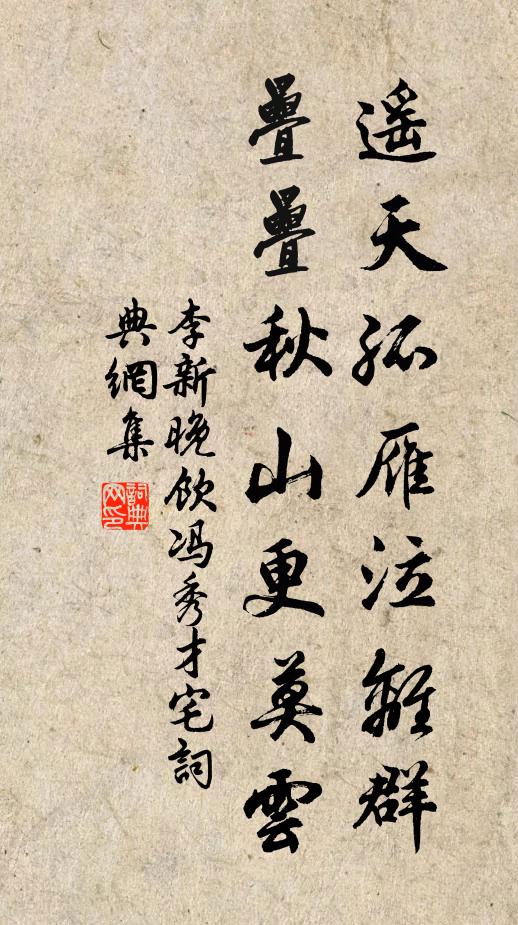 遥天孤雁泣離群
疊疊秋山更莫雲
李新晚飲冯秀才宅詞
典網集
詞典网印